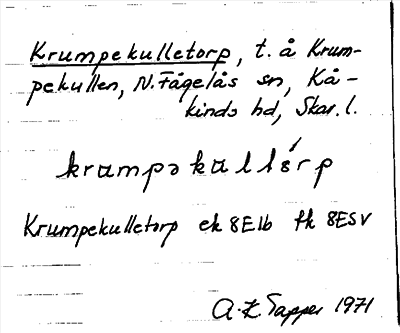 Krumpekulletorp, t. å Krum-
pekullen, N. Fågelås sn, Kå-
kinds hd, Skar. l.
krumpəkulltórp
Krumpekulletorp ek 8E1b fk 8E5V
Tapper 1971